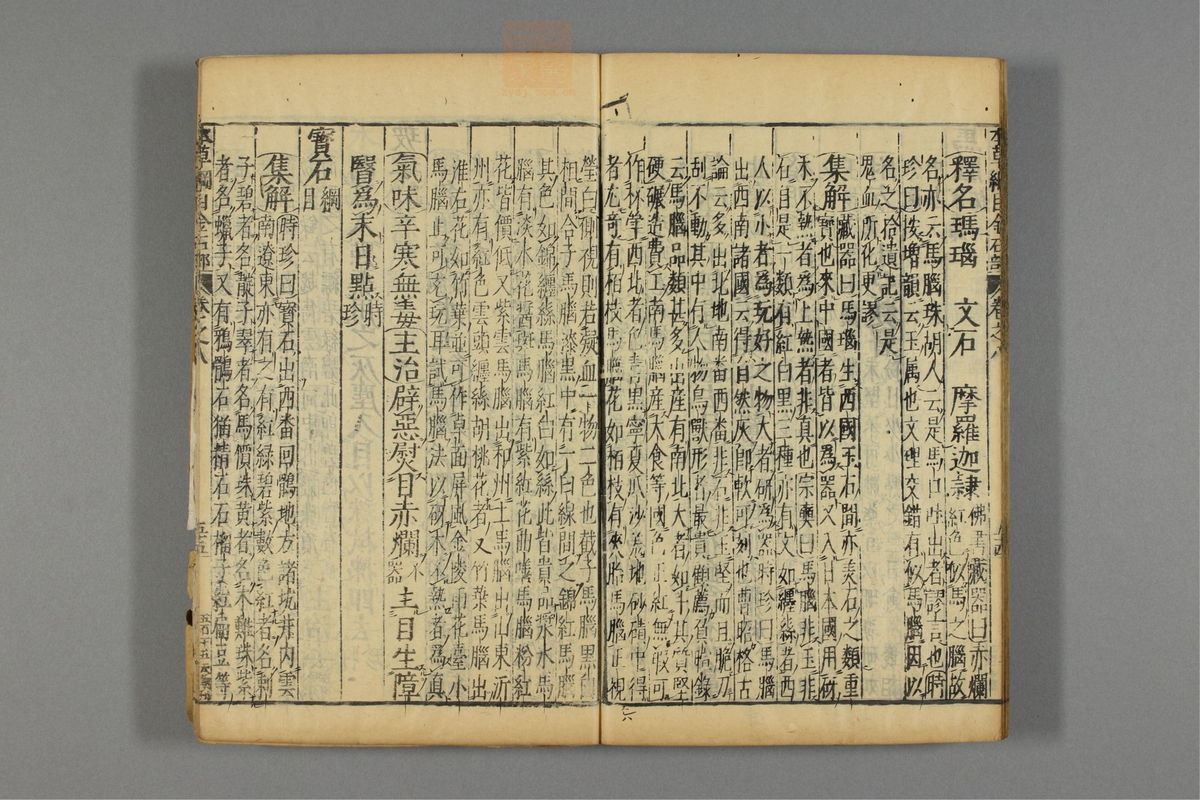 釋名瑪瑙 文石 摩羅迦隷 佛書藏器曰赤爛紅色似馬之腦故
名亦云馬腦珠胡人云是馬口吐出者謬言也時
珍曰按增韻云玉屬也文理交錯有似馬腦因以
名之拾遺記云是
鬼血所化更謬
集解 藏器曰馬瑙生西國玉石間亦美石之類重
寶也來中國者皆以為器又入日本國用砑
木不熱者為上熱者非真也宗奭曰馬腦非玉非
石自是一類有紅白黑三種亦有文如纏絲者西
人以小者為玩好之物大者研為器時珍曰馬腦
出西南諸國云得自然灰即軟可刻也曹昭格古
論云多出北地南番西番非石非玉堅而脆刀
刮不動其中有人物鳥獸形者最貴顧薦負暄錄
云馬腦品類甚多出産有南北大者如斗其質堅
硬碾造費工南馬腦産大食等國色正紅無瑕可
作杯斝西北者色青黑寧夏瓜沙羌地砂磧中得
者尤奇有栢枝馬腦花如栢枝有夾胎馬腦正視
瑩白側視則若凝血一物二色也截子馬腦黑白
相間合子馬腦漆黑中有一白線間之錦紅馬腦
其色如錦纏絲馬腦紅白如絲此皆貴品漿水馬
腦有淡水花醬斑馬腦有紫紅花曲蟮馬腦粉紅
花皆價低又紫雲馬腦出和州土馬腦出山東沂
州亦有紅色雲頭纏絲胡桃花者又竹葉馬腦出
淮右花如竹葉並可作桌面屏風金陵雨花臺小
馬腦止可充玩耳試馬腦法以砑木不熱者為真
氣味辛寒無毒主治辟惡熨目赤爛 藏器 主目生障
瞖為末日點 時珍
寶石 綱目
集解 時珍曰寶石出西番回鶻地方諸坑井內雲
南遼東亦有之有紅綠碧紫數色紅者名剌
子碧者名靛子翠者名馬價珠黃者名木難珠紫
者名蠟子又有鴉鶻石猫精石石榴子紅扁豆等
本草綱目金石部 卷之八 五五